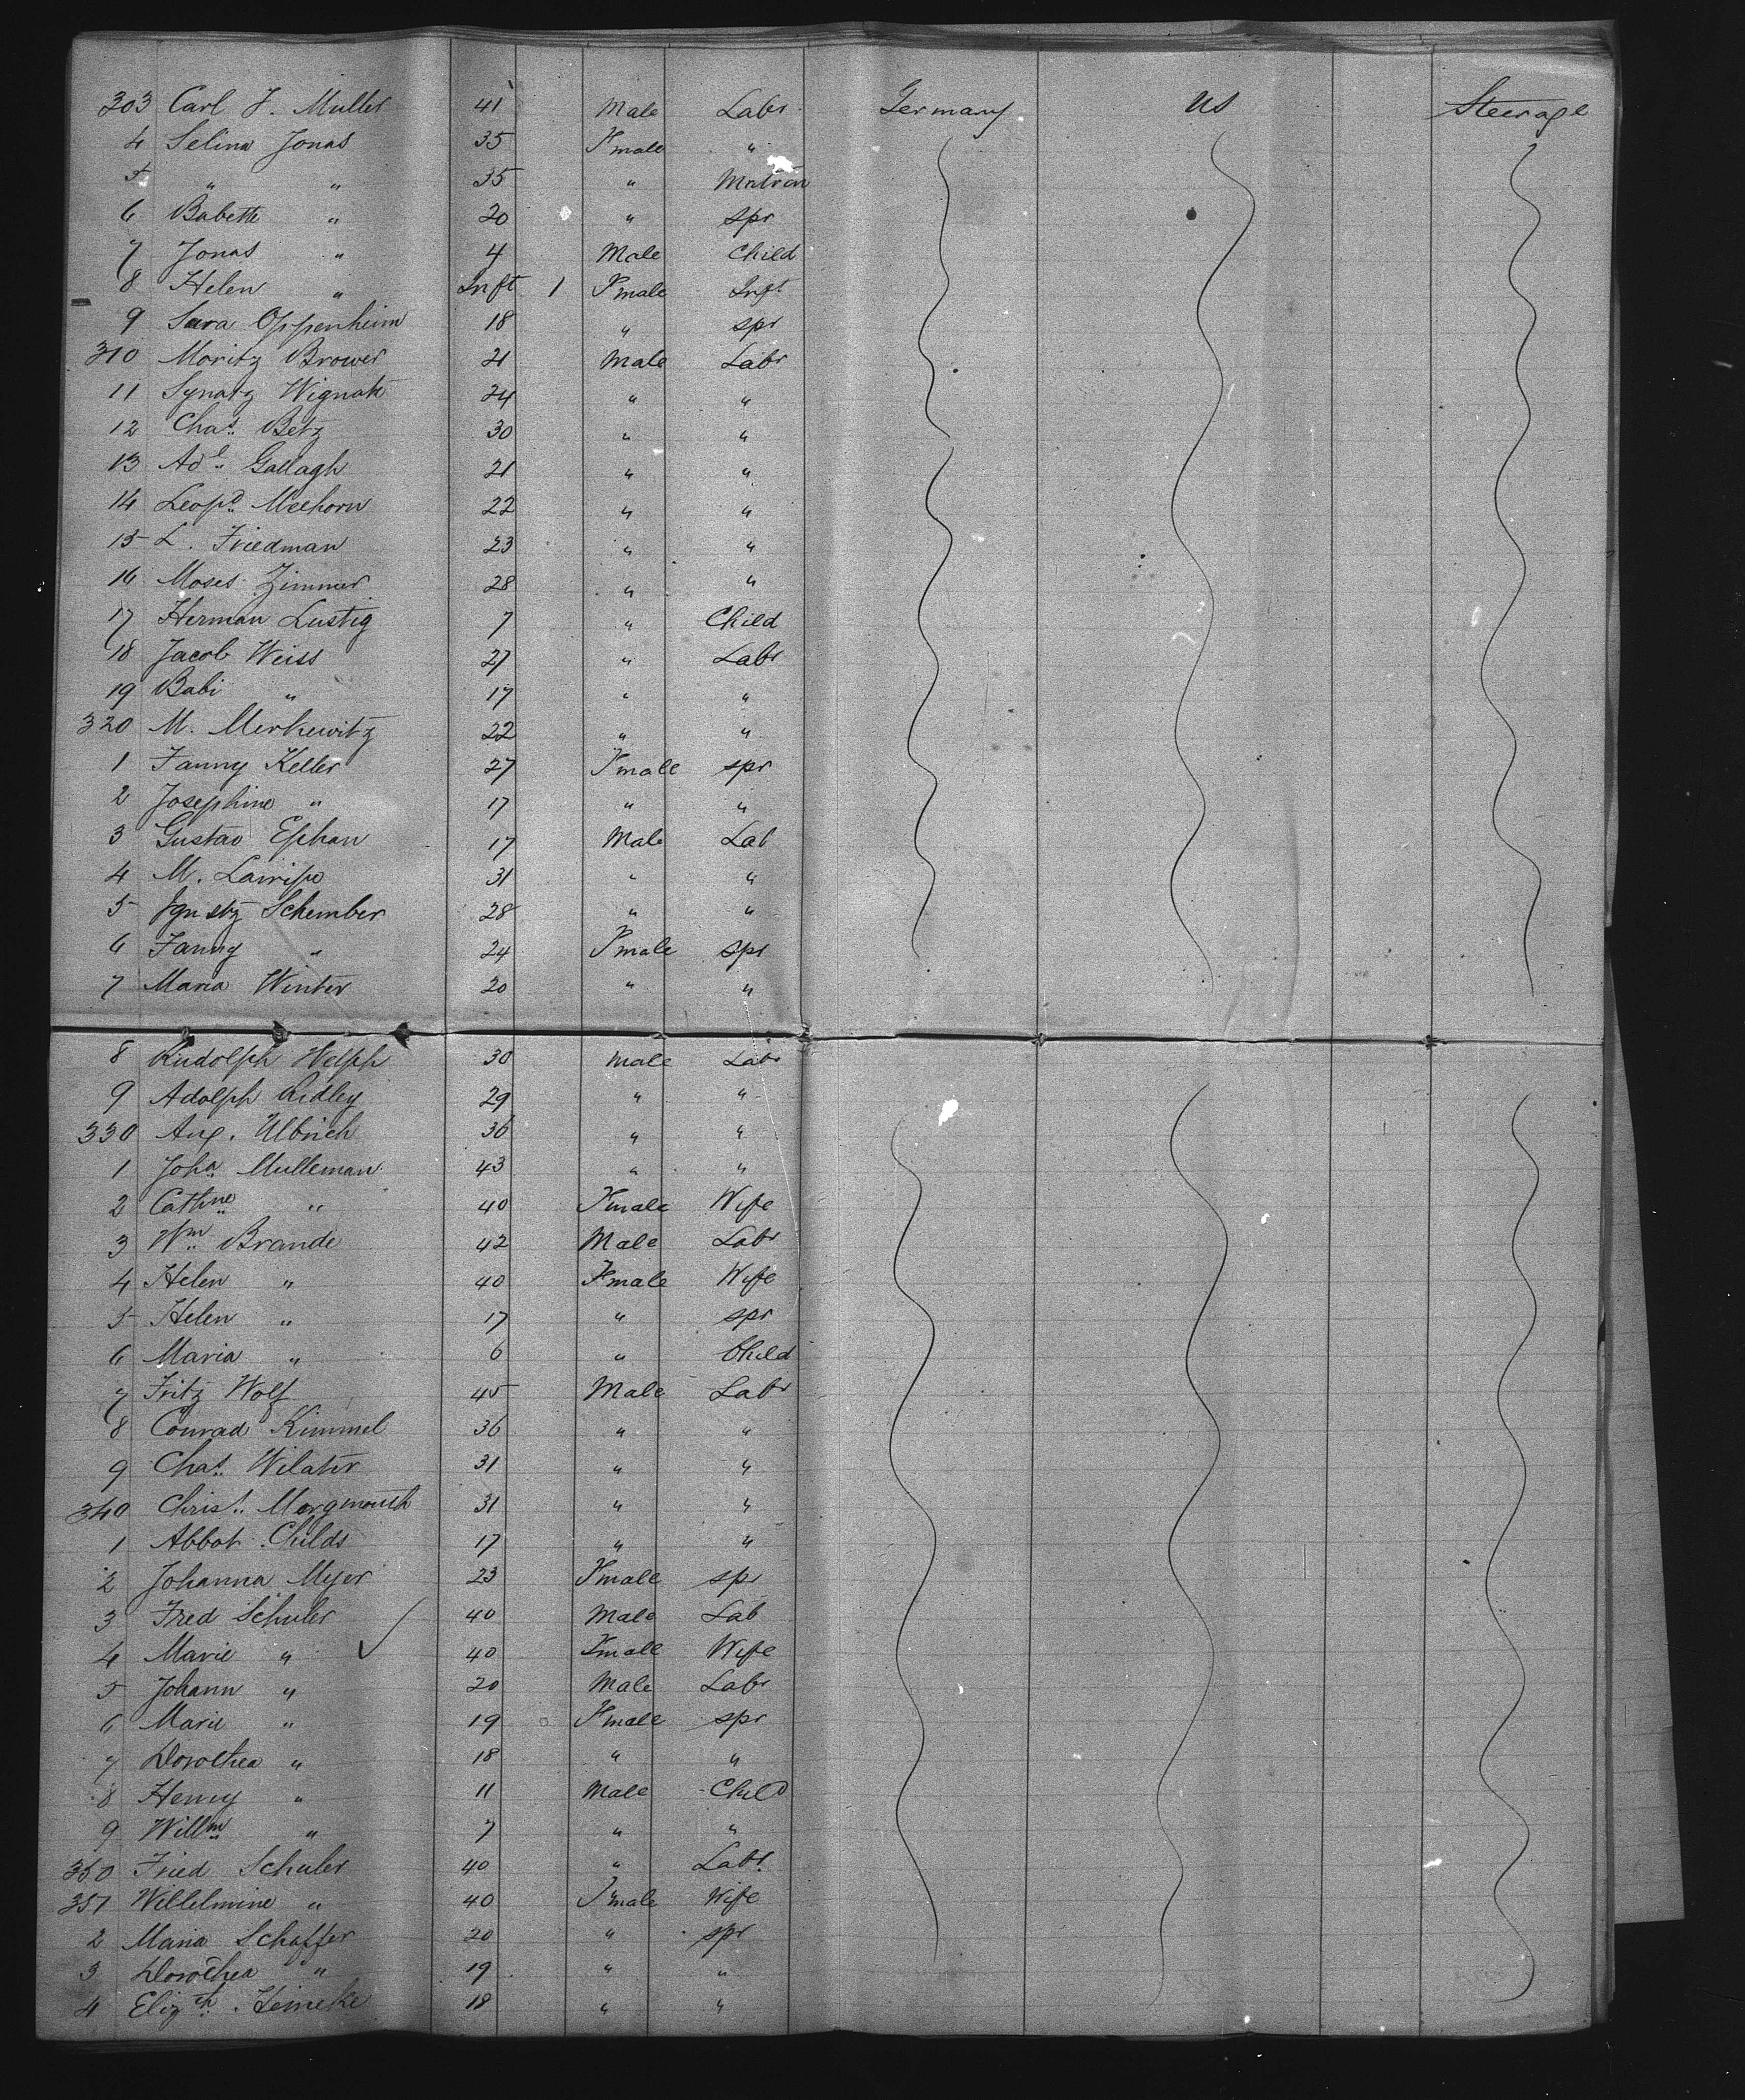 303 Carl J. Muller 41 Male Labr Germany US Steerage
4 Selina Jonas 35 Fmale "
5 " " 35 " Matron
6 Babette " 20 " spr
7 Jonas " 4 Male Child
8 Helen " Inft 1 Fmale Inft
9 Sara Oppenheim 18 " spr
310 Moritz Brower 21 Male Labr
11 Ignatz Wignak 24 " "
12 Chas. Betz 30 " "
13 Adl. Gallagh 21 " "
14 Leopd. Meehorn 22 " "
15 L. Friedman 23 " "
16 Moses Zimmer 28 " "
17 Herman Lustig 7 " Child
18 Jacob Weiss 27 " Labr
19 Babi " 17 " "
320 M. Merkewitz 22 " "
1 Fanny Keller 27 Fmale spr
2 Josephine " 17 " "
3 Gustav Ephan 17 Male Lab
4 M. 31 " "
5 Schember 28 " "
6 Fanny " 24 Fmale spr
7 Maria Winter 20 " "
8 Rudolph Welph 30 Male Labr
9 Adolph Ridley 29 " "
330 Aug. Ulbrich 36 " "
1 Joha Mulleman 43 " "
2 Cathne " 40 Fmale Wife
3 Wm Brande 42 Male Labr
4 Helen " 40 Fmale Wife
5 Helen " 17 " spr
6 Maria " 6 " Child
7 Fritz Wolf 45 Male Labr
8 Conrad Kimmel 36 " "
9 Chas. Wilater 31 " "
340 Christ. 31 " "
1 Abbot Childs 17 " "
2 Johanna Myer 23 Fmale spr
3 Fred Schuler 40 Male Lab
4 Marie " 40 Fmale Wife
5 Johann " 20 Male Labr
6 Marie " 19 Fmale spr
7 Dorothea " 18 " "
8 Henry " 11 Male Child
9 Willm " 7 " "
350 Fried Schuler 40 " Labr
351 Willelmine " 40 Fmale Wife
2 Maria Schaffer 20 " spr
3 Dorothea " 19 " "
4 Elizth. Heineke 18 " "